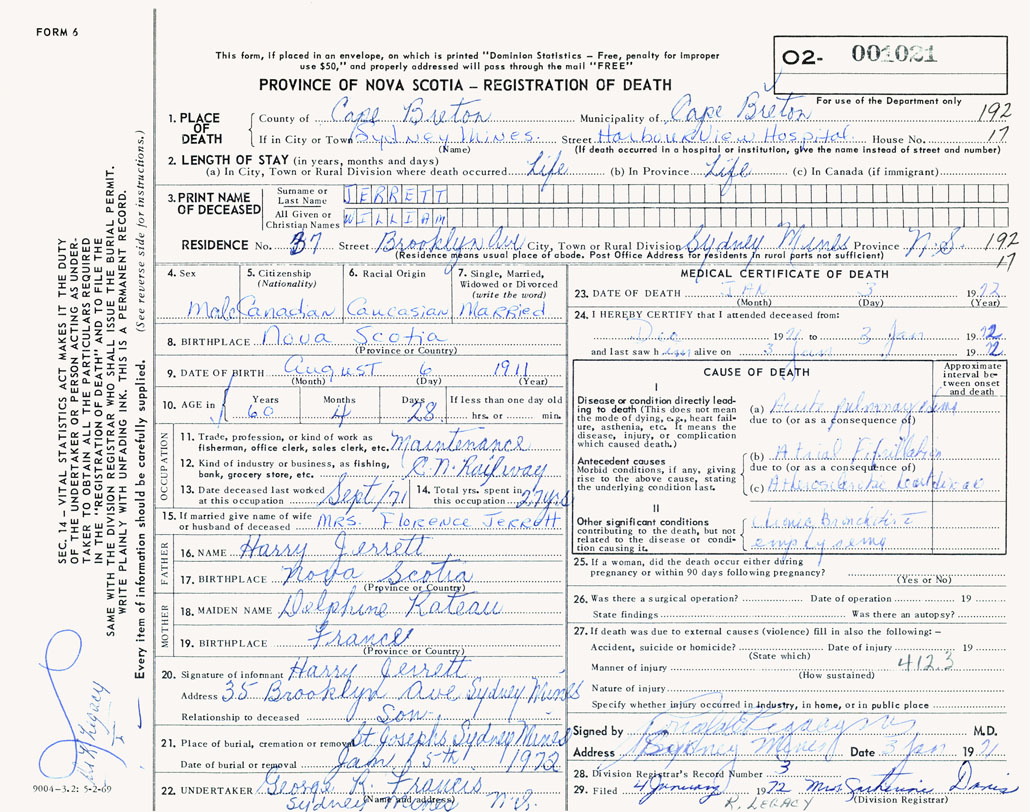 FORM 6
This form, if placed in an envelope, on which is printed "Dominion Statistics – Free, penalty for improper
use $50," and properly addressed will pass through the mail "FREE"
02- 001021
PROVINCE OF NOVA SCOTIA – REGISTRATION OF DEATH
For use of the Department only
1. PLACE OF DEATH
County of Cape Breton Municipality of Cape Breton 192
If in City or Town Sydney Mines. Street Harbourview Hospital. House No. 17
(Name) (If death occurred in a hospital or institution, give the name instead of street and number)
2. LENGTH OF STAY (in years, months and days)
(a) In City, Town or Rural Division where death occurred Life (b) In Province Life (c) In Canada (if immigrant)
3. PRINT NAME OF DECEASED
Surname or Last Name JERRETT
All Given or Christian Names WILLIAM
RESIDENCE No. 37 Street Brooklyn Ave City, Town or Rural Division Sydney Mines Province N.S. 192
(Residence means usual place of abode. Post Office Address for residents in rural parts not sufficient) 17
4. Sex Male
5. Citizenship (Nationality) Canadian
6. Racial Origin Caucasian
7. Single, Married, Widowed or Divorced (write the word) Married
8. BIRTHPLACE Nova Scotia
(Province or Country)
9. DATE OF BIRTH August 6 1911
(Month) (Day) (Year)
10. AGE in Years 60 Months 4 Days 28 If less than one day old
hrs. or min.
OCCUPATION
11. Trade, profession, or kind of work as
fisherman, office clerk, sales clerk, etc. Maintenance
12. Kind of industry or business, as fishing,
bank, grocery store, etc. C.N. Railway
13. Date deceased last worked at this occupation Sept/71
14. Total yrs. spent in this occupation 27 yrs
15. If married give name of wife
or husband of deceased MRS. FLORENCE JERRETT
FATHER
16. NAME Harry Jerrett
17. BIRTHPLACE Nova Scotia
(Province or Country)
MOTHER
18. MAIDEN NAME Delphine Rateau
19. BIRTHPLACE France
(Province or Country)
20. Signature of informant Harry Jerrett
Address 35 Brooklyn Ave Sydney Mines
Relationship to deceased Son
21. Place of burial, cremation or removal St Josephs Sydney Mines
Date of burial or removal Jan. 5th 1972
22. UNDERTAKER George R. Francis
(Name and address)
Sydney Mines N.S.
MEDICAL CERTIFICATE OF DEATH
23. DATE OF DEATH JAN 3 1972
(Month) (Day) (Year)
24. I HEREBY CERTIFY that I attended deceased from:
Dec 1971 to 3 Jan 1972
and last saw him alive on 3 Jan 1972
CAUSE OF DEATH
Approximate interval between onset and death
I
Disease or condition directly leading to death (This does not mean the mode of dying, e.g., heart failure, asthenia, etc. It means the disease, injury, or complication which caused death.)
(a) Acute pulmonary edema
due to (or as a consequence of)
Antecedent causes
Morbid conditions, if any, giving rise to the above cause, stating the underlying condition last.
(b) Atrial Fibrillation
due to (or as a consequence of)
(c) Atherosclerotic heart disease
II
Other significant conditions contributing to the death, but not related to the disease or condition causing it.
Chronic Bronchitis &
emphysema
25. If a woman, did the death occur either during
pregnancy or within 90 days following pregnancy?
(Yes or No)
26. Was there a surgical operation? Date of operation 19
State findings Was there an autopsy?
27. If death was due to external causes (violence) fill in also the following: –
Accident, suicide or homicide? Date of injury 19
(State which)
Manner of injury 412.3
(How sustained)
Nature of injury
Specify whether injury occurred in industry, in home, or in public place
Signed by M.D.
Address Sydney Mines Date 3 Jan 1971
28. Division Registrar's Record Number 3
29. Filed 4 January 1972 Miss Katherine Davis
(Division Registrar)
R. LEGACY
SEC. 14 – VITAL STATISTICS ACT MAKES IT THE DUTY
OF THE UNDERTAKER OR PERSON ACTING AS UNDER-
TAKER TO OBTAIN ALL THE PARTICULARS REQUIRED
IN THE "REGISTRATION OF DEATH" AND TO FILE THE
SAME WITH THE DIVISION REGISTRAR WHO SHALL ISSUE THE BURIAL PERMIT.
WRITE PLAINLY WITH UNFADING INK. THIS IS A PERMANENT RECORD.
Every item of information should be carefully supplied. (See reverse side for instructions.)
9004-3.2: 5-2-69